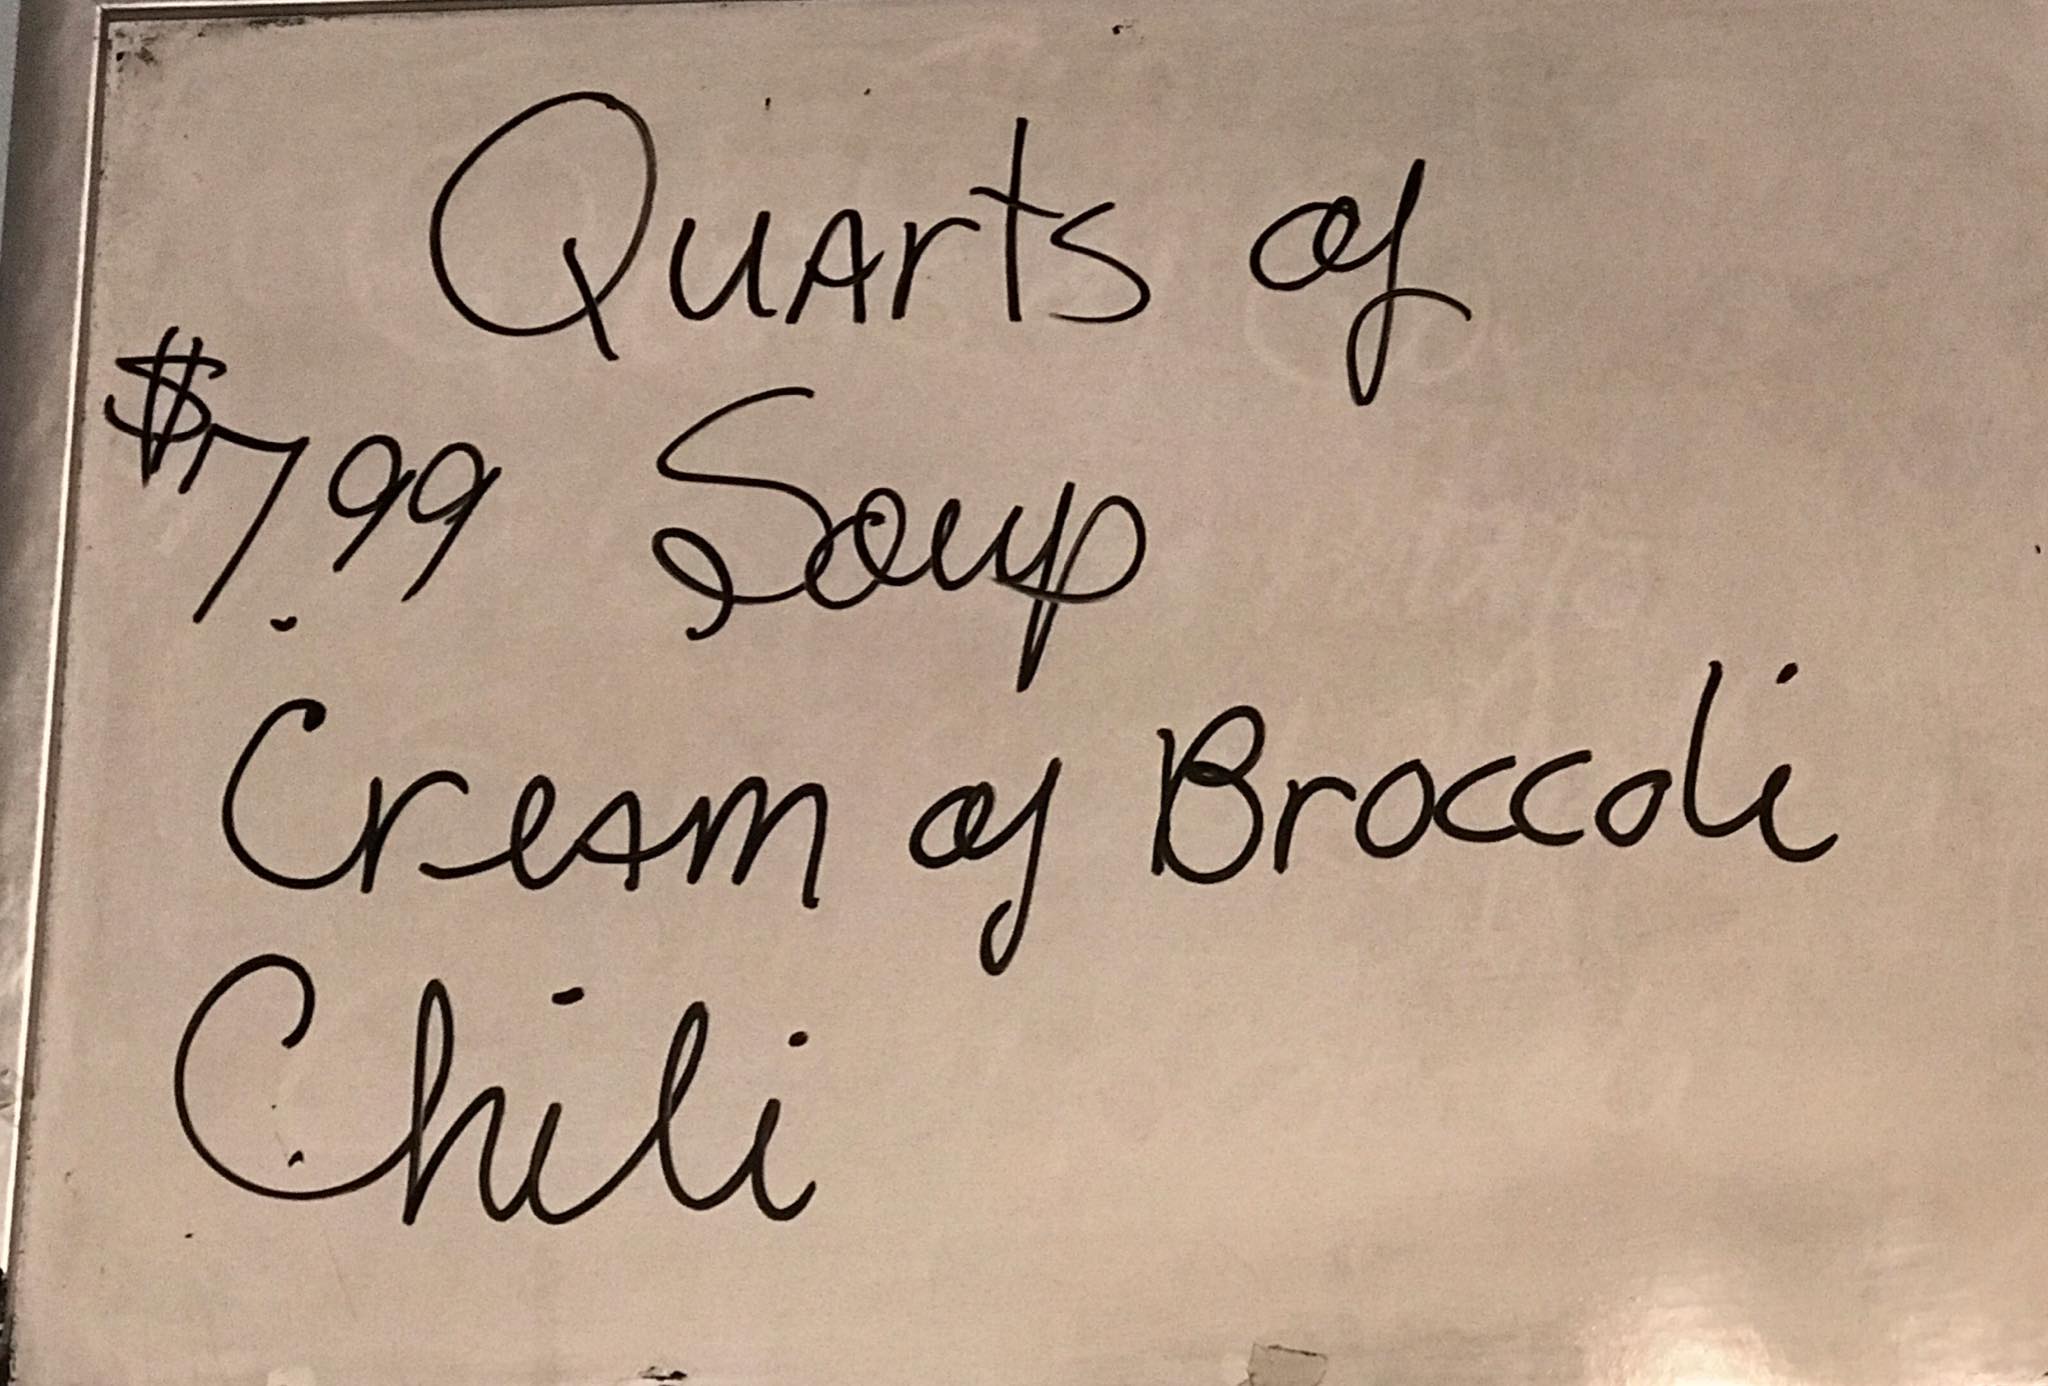 Quarts of
$7.99 Soup
Cream of Broccoli
Chili